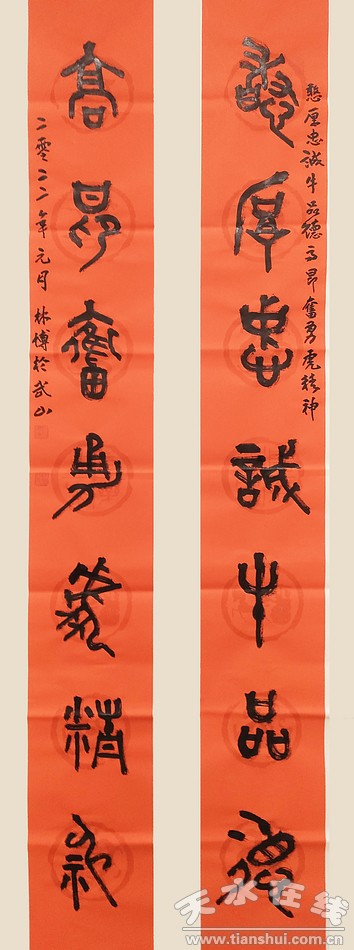 憨厚忠诚牛品德高昂奋勇虎精神
憨厚忠誠牛品德
高昂奮勇虎精神
二零二二年元月 林博於武山
天水在线
www.tianshui.com.cn